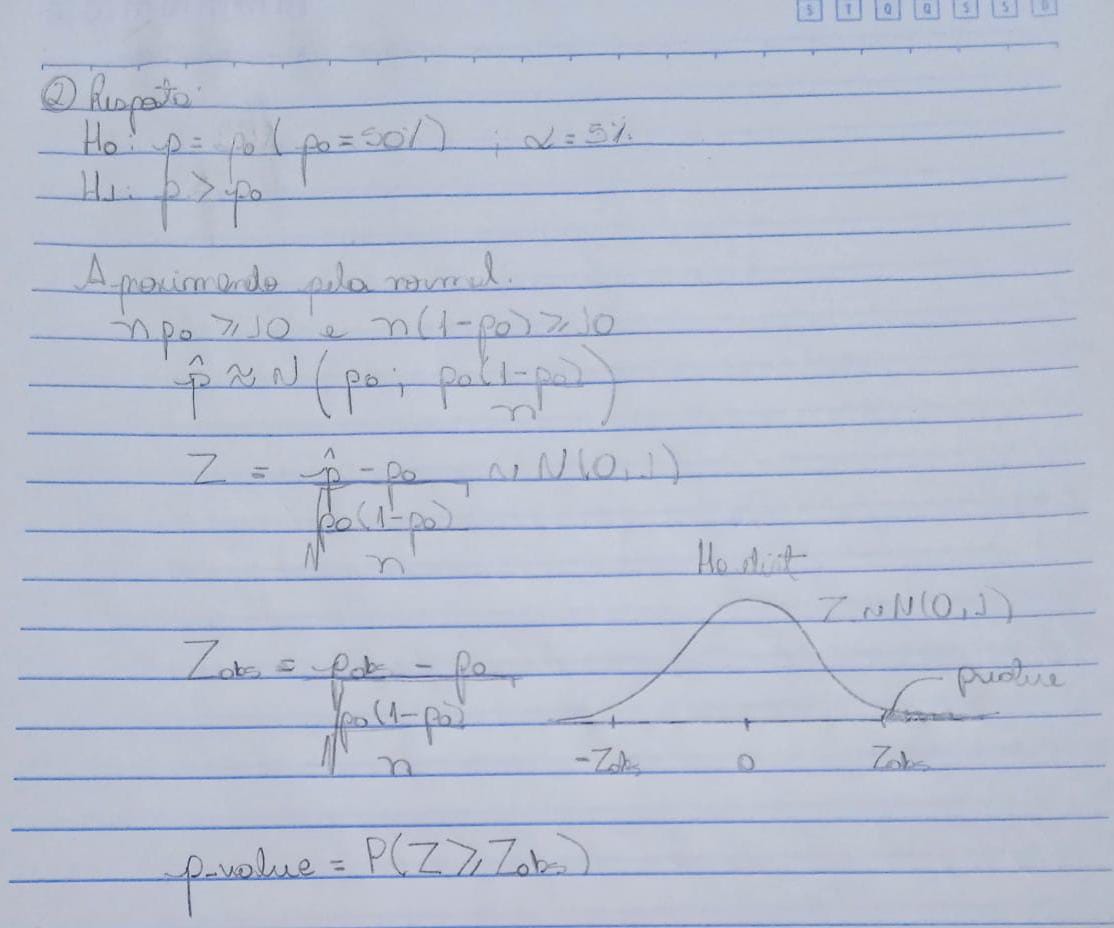 S T Q Q S S D
② Resposta:
H₀: p = p₀ ( p₀ = 50% ) ; α = 5%.
H₁: p > p₀
Aproximando pela normal.
n p₀ ⩾ 10 e n(1-p₀) ⩾ 10
p̂ ≈ N ( p₀ ; p₀(1-p₀) / n )
Z = (p̂ - p₀) / √(p₀(1-p₀) / n) ~ N(0,1)
H₀ dist
Z ~ N(0,1)
Zobs = (pobs - p₀) / √(p₀(1-p₀) / n)
pvalue
-Zobs 0 Zobs
p-value = P(Z ⩾ Zobs)